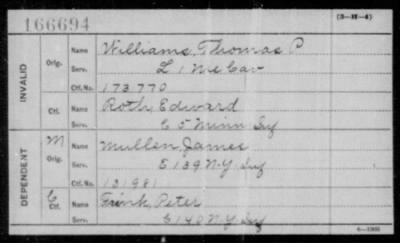 166694 (3—H—4)
INVALID
Orig. Name Williams, Thomas P
Serv. L 1 Me Cav
Ctf. No. 173770
Ctf. Name Roth, Edward
Serv. C 5 Minn Inf
DEPENDENT
M
Orig. Name Mullen, James
Serv. E 139 N.Y. Inf
Ctf. No. 131981
C
Ctf. Name Frink, Peter
Serv. G 140 N.Y. Inf